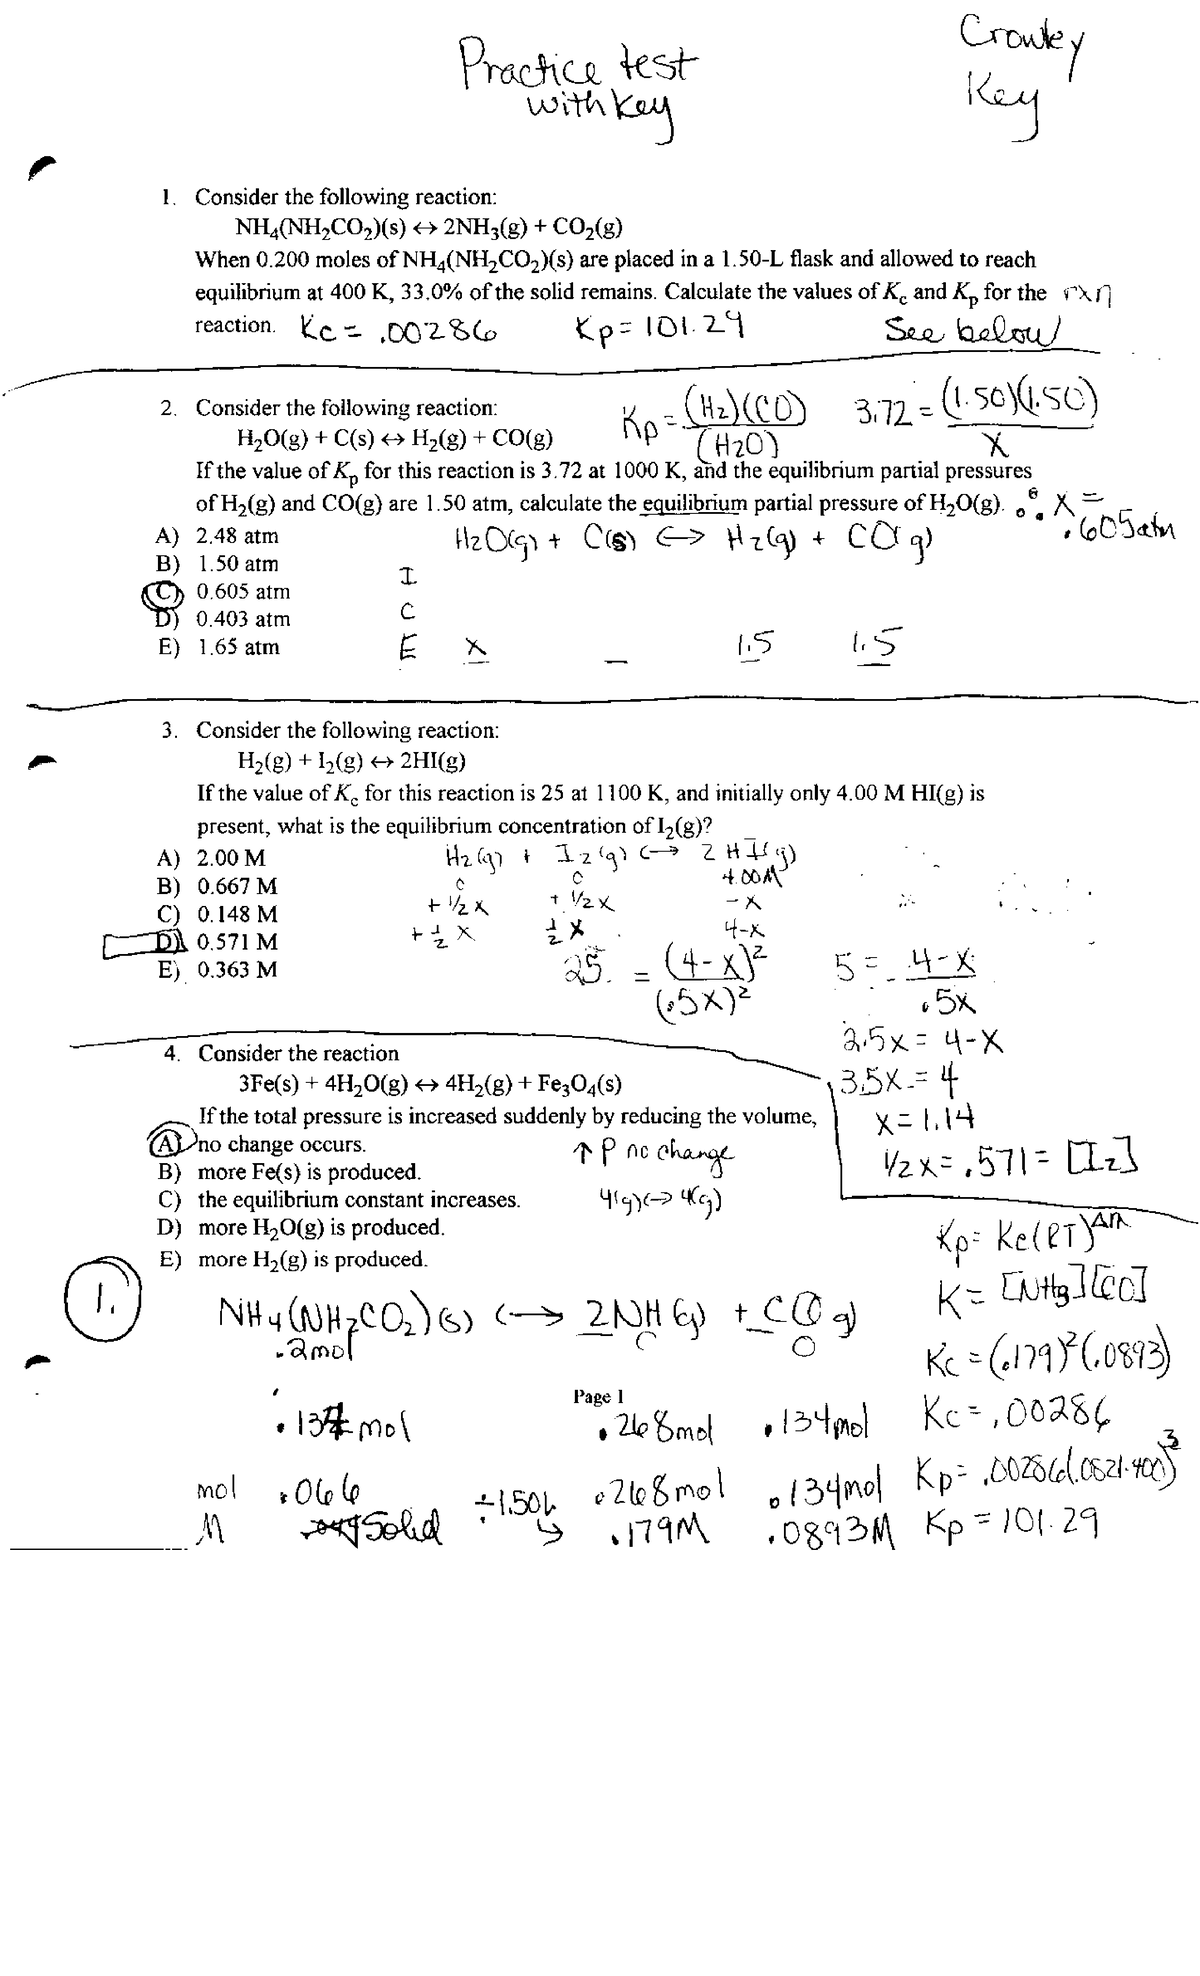 Practice test
with key
Crowley
Key
1. Consider the following reaction:
NH₄(NH₂CO₂)(s) ↔ 2NH₃(g) + CO₂(g)
When 0.200 moles of NH₄(NH₂CO₂)(s) are placed in a 1.50-L flask and allowed to reach
equilibrium at 400 K, 33.0% of the solid remains. Calculate the values of Kc and Kp for the rxn
reaction. Kc = .00286 Kp = 101.29 See below
2. Consider the following reaction:
H₂O(g) + C(s) ↔ H₂(g) + CO(g)
Kp = (H₂)(CO) / (H₂O) 3.72 = (1.50)(1.50) / X
If the value of Kp for this reaction is 3.72 at 1000 K, and the equilibrium partial pressures
of H₂(g) and CO(g) are 1.50 atm, calculate the equilibrium partial pressure of H₂O(g). ∴ X =
.605atm
A) 2.48 atm
B) 1.50 atm
C) 0.605 atm
D) 0.403 atm
E) 1.65 atm
H₂O(g) + C(s) ↔ H₂(g) + CO(g)
I
C
E X _ 1.5 1.5
3. Consider the following reaction:
H₂(g) + I₂(g) ↔ 2HI(g)
If the value of Kc for this reaction is 25 at 1100 K, and initially only 4.00 M HI(g) is
present, what is the equilibrium concentration of I₂(g)?
A) 2.00 M
B) 0.667 M
C) 0.148 M
D) 0.571 M
E) 0.363 M
H₂(g) + I₂(g) ↔ 2HI(g)
0 0 4.00M
+ 1/2 X + 1/2 X - X
+ 1/2 X 1/2 X 4-X
25. = (4-X)² / (.5X)²
5 = 4-X / .5X
2.5X = 4-X
3.5X = 4
X = 1.14
1/2 X = .571 = [I₂]
4. Consider the reaction
3Fe(s) + 4H₂O(g) ↔ 4H₂(g) + Fe₃O₄(s)
If the total pressure is increased suddenly by reducing the volume,
A) no change occurs.
B) more Fe(s) is produced.
C) the equilibrium constant increases.
D) more H₂O(g) is produced.
E) more H₂(g) is produced.
↑ P no change
4(g) ↔ 4(g)
1.
NH₄(NH₂CO₂)(s) ↔ 2NH (g) + CO (g)
.2mol 0 0
.134 mol .268mol .134mol
mol .066 .268mol .134mol
M Solid ÷1.50L → .179M .0893M
Page 1
Kp = Kc(RT)^Δn
K = [NH₃][CO]
Kc = (.179)²(.0893)
Kc = .00286
Kp = .00286(.0821·400)³
Kp = 101.29